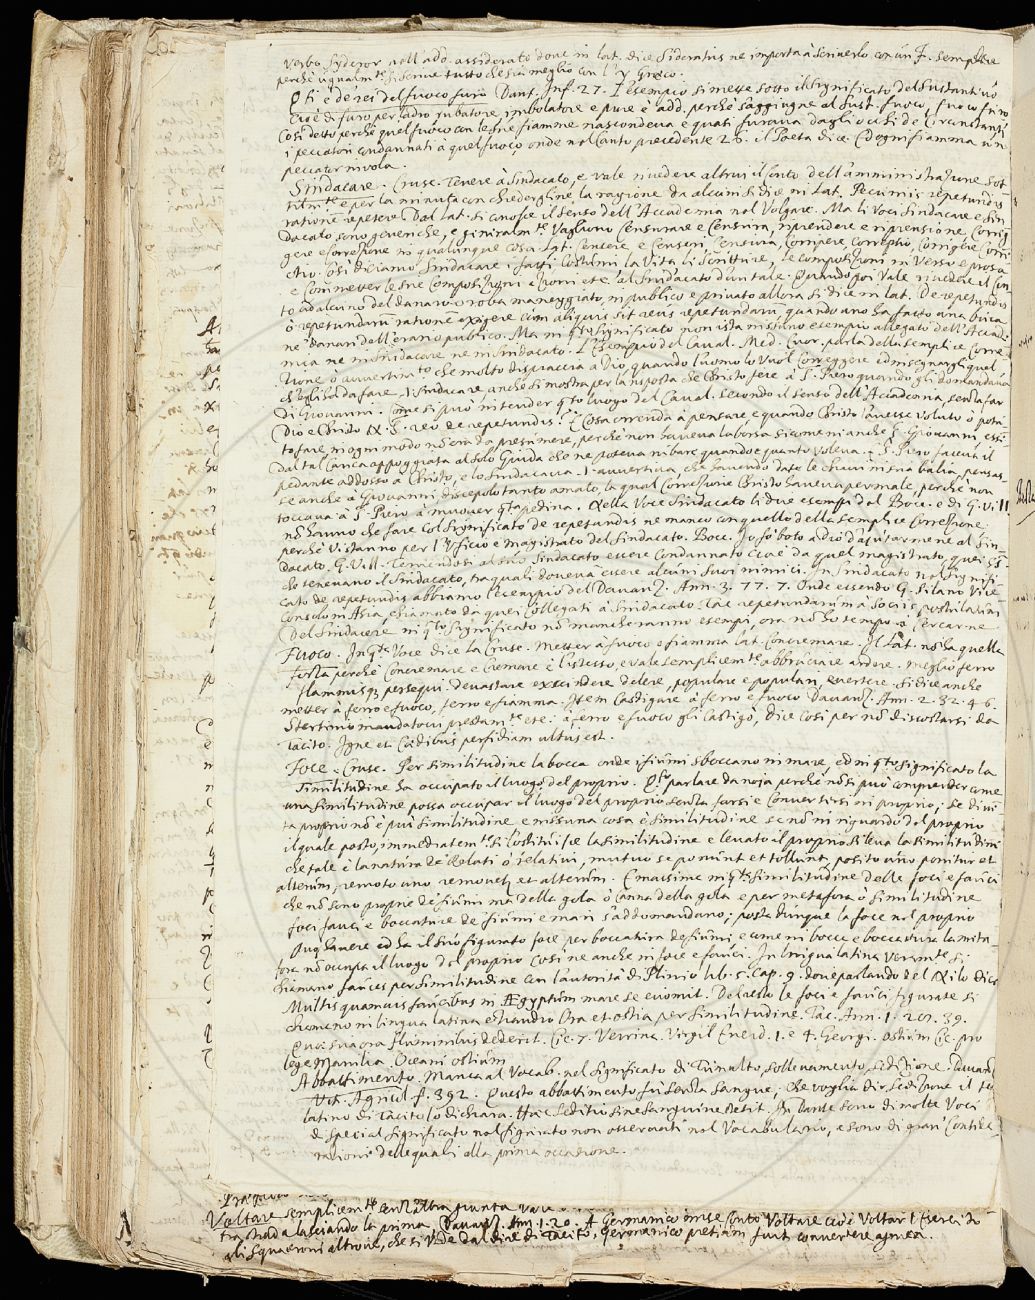 verbo sydero nell'add. assiderato dove in lat. dice Sideratus ne importa à scriverlo con un I. semplice
perchè ugualmte si scrive tutto che sia meglio con l'y Greco.
Cioè di furo per ladro rubatore imbolatore e pure è add. perchè s'aggiugne al sust. fuoco, fuoco furo
Così detto perchè quel fuoco con le sue fiamme nascondeva e quasi furava dagli occhi de Circunstanti
i peccatori condannati a quel fuoco, onde nel Canto precedente 26. il Poeta dice. Ed ogni fiamma un
peccator invola.
Sindacare. Crusc. Tenere à Sindacato, e vale rivedere altrui il Conto dell'amministrazione sot
tilmte e per la minuta con chiedergline la ragione da alcuni si dice in Lat. Pecuniis repetundis
rationē repetere. Dal Lat. si conosce il senso dell'Accademia nel Volgare. Ma li Voci Sindacare e Sin
dacato sono generiche, e generalmte Vagliono Censurare e Censura, riprendere e riprensione, Correg
gere e Correzione in qualunque cosa. Lat. Censere, e Censeri, Censura, Corripere Correptio, Corrigere Corre
ctio. Così diciamo Sindacare i fatti Costumi la Vita li Scritture, le composizioni in Verso e prosa
e Commettere le sue Composizioni azioni etc. al Sindacato d'un tale. Quando poi Vale rivedere il Con
to ad alcuno del danaro ò roba maneggiato, in publico e privato allora si dice in lat. De repetundis
ò repetundarū rationē exigere cum aliquis sit reus repetundarū, quando uno ha fatto una buca
ne' danari dell'erario publico. Ma in qsto Significato non ista nissuno esempio allegato dell'Accade
mia ne in Sindacare ne in Sindacato. L'Esempio del Caval. Med. Cuor. parla della semplice Corre
zione ò avvertimto che molto dispiaccia a Dio, quando l'uomo lo Vuol Correggere ed insegnargli quel
ch'egli ha da fare. Sindacare, anche si mostra per la risposta che Christo fece à S. Piero quando gli domandava
Di Giovanni. Come si può intender qsto luogo del Caval. secondo il senso dell'Accademia, senza far
Dio e Christo N. S. reo de repetundis? Cosa orrenda à pensare, e quando Christo l'avesse voluto ò potu
to fare, in ogni modo nō era da presumere, perchè non haveva la borsa sicome ni anche S. Giovanni, essē
do tal carica appoggiata al solo Giuda che ne poteva rubare quando e quanto voleva. S. Piero faceva il
pedante addosso a Christo, e lo Sindacava. l'avvertiva che havendo date le chiavi in sua balia, pensas
se anche à Giovanni, discepolo tanto amato, la qual Correzione Christo haveva per male, perchè non
toccava à S. Piero à muover qsta pedina. Nella Voce Sindacato li due esempi del Bocc. e di G. V. 11
nō hanno che fare col Significato de repetundis ne manco con quello della semplice Correzione
perchè vi stanno per l'Uficio e magistrato del Sindacato. Bocc. Io fo boto a Dio d'aiutarmene al Sin
dacato. G. Vill. Temendosi al suo Sindacato essere Condannato cioè da quel magistrato, quei SS.
che tenevano il Sindacato, tra quali doveva essere alcuni suoi nimici. In Sindacato nel signifi
cato de repetundis abbiamo l'esempio del Davanz. Ann. 3. 77. 7. Onde essendo G. Silano Vice
Consolo in Asia, chiamato da quei Collegati à Sindacato. Tac. repetundarum à Sociis postulatum
Del Sindacare in qsto Significato nō mancheranno esempi, ora nō ho tempo à cercarne.
Fuoco. In qsta Voce dice la Crusc. Metter à fuoco e fiamma lat. Concremare. Il Lat. nō ha quella
forza perchè Concremare e Cremare è l'istesso, e vale semplicemte abbruciare ardere. meglio ferro
flammisq; persequi. devastare excindere delere, populare e populari, evertere. Si dice anche
metter à ferro e fuoco, ferro e fiamma. Item Castigare à ferro e fuoco Davanz. Ann. 2. 32. 46.
Stertinio mandatovi prestamte etc. à ferro e fuoco gli Castigò, dice così per nō discostarsi da
Tacito. Igne et Cædibus perfidiam ultus est.
Foce. Crusc. Per similitudine la bocca onde i fiumi sboccano in mare, ed in qsto significato la
similitudine ha occupato il luogo del proprio. Qsto parlare dà noja perchè nō si può comprender come
una similitudine possa occupar il luogo del proprio senza farsi e Convertirsi in proprio; se divi
ta proprio nō è più similitudine e nissuna cosa è similitudine se nō in riguardo del proprio
il quale posto, immediatemte si Costituisce la similitudine e levato il proprio si leva la similitudine
che tale è la natura de' Relati ò relativi, mutuo se ponunt et tollunt, posito uno ponitur et
alterum, remoto uno removetr et alterum. E massime in qsta similitudine delle foci e fauci
che nō sono proprie de' fiumi ma della gola ò canna della gola e per metafora ò similitudine
foci fauci e boccature de' fiumi e mari s'addomandano; posta dunque la foce nel proprio
suo havere ed ha il suo figurato foce per boccatura de fiumi; e come in bocca e boccatura la meta
fora nō occupa il luogo del proprio così ne anche in foce e fauci. In lingua latina veramte si
chiamano fauces per similitudine con l'autorità di Plinio lib. 5. cap. 9. dove parlando del Nilo dice
Multis quamvis faucibus in Ægyptium mare se evomit. Del resto le foci e fauci figurate si
chiamano in lingua latina eziandio Ora et ostia per similitudine. Tac. Ann. 1. 201. 39.
Quasi sua ora fluminibus dederit. Cic. 7. Verrina. Virgil Eneid. 1. e 4. Georgi. ostium Cic. pro
lege Manilia Oceani ostium
Abbattimento. Manca al Vocab. nel significato di Tumulto, sollevamento, sedizione. Davanz.
Vit. Agricol. f. 392. Questo abbattimento fu senza sangue, che voglia dir sedizione il te
latino di Tacito lo dichiara. Hæc seditio sine sanguine stetit. In Dante sono di molte Voci
di special significato nel figurato non osservati nel Vocabulario, e sono di gran Conside
razione delle quali alla prima occasione.
Voltare semplicemte senz'altra giunta vale
tra strada lasciando la prima. Davanz. Ann. 1. 20. A Germanico mise conto Voltare cioè Voltar l'Esercito
gli Squadroni altrove, che si vede dal dire di Tacito, Germanico pretium fuit convertere agmen.